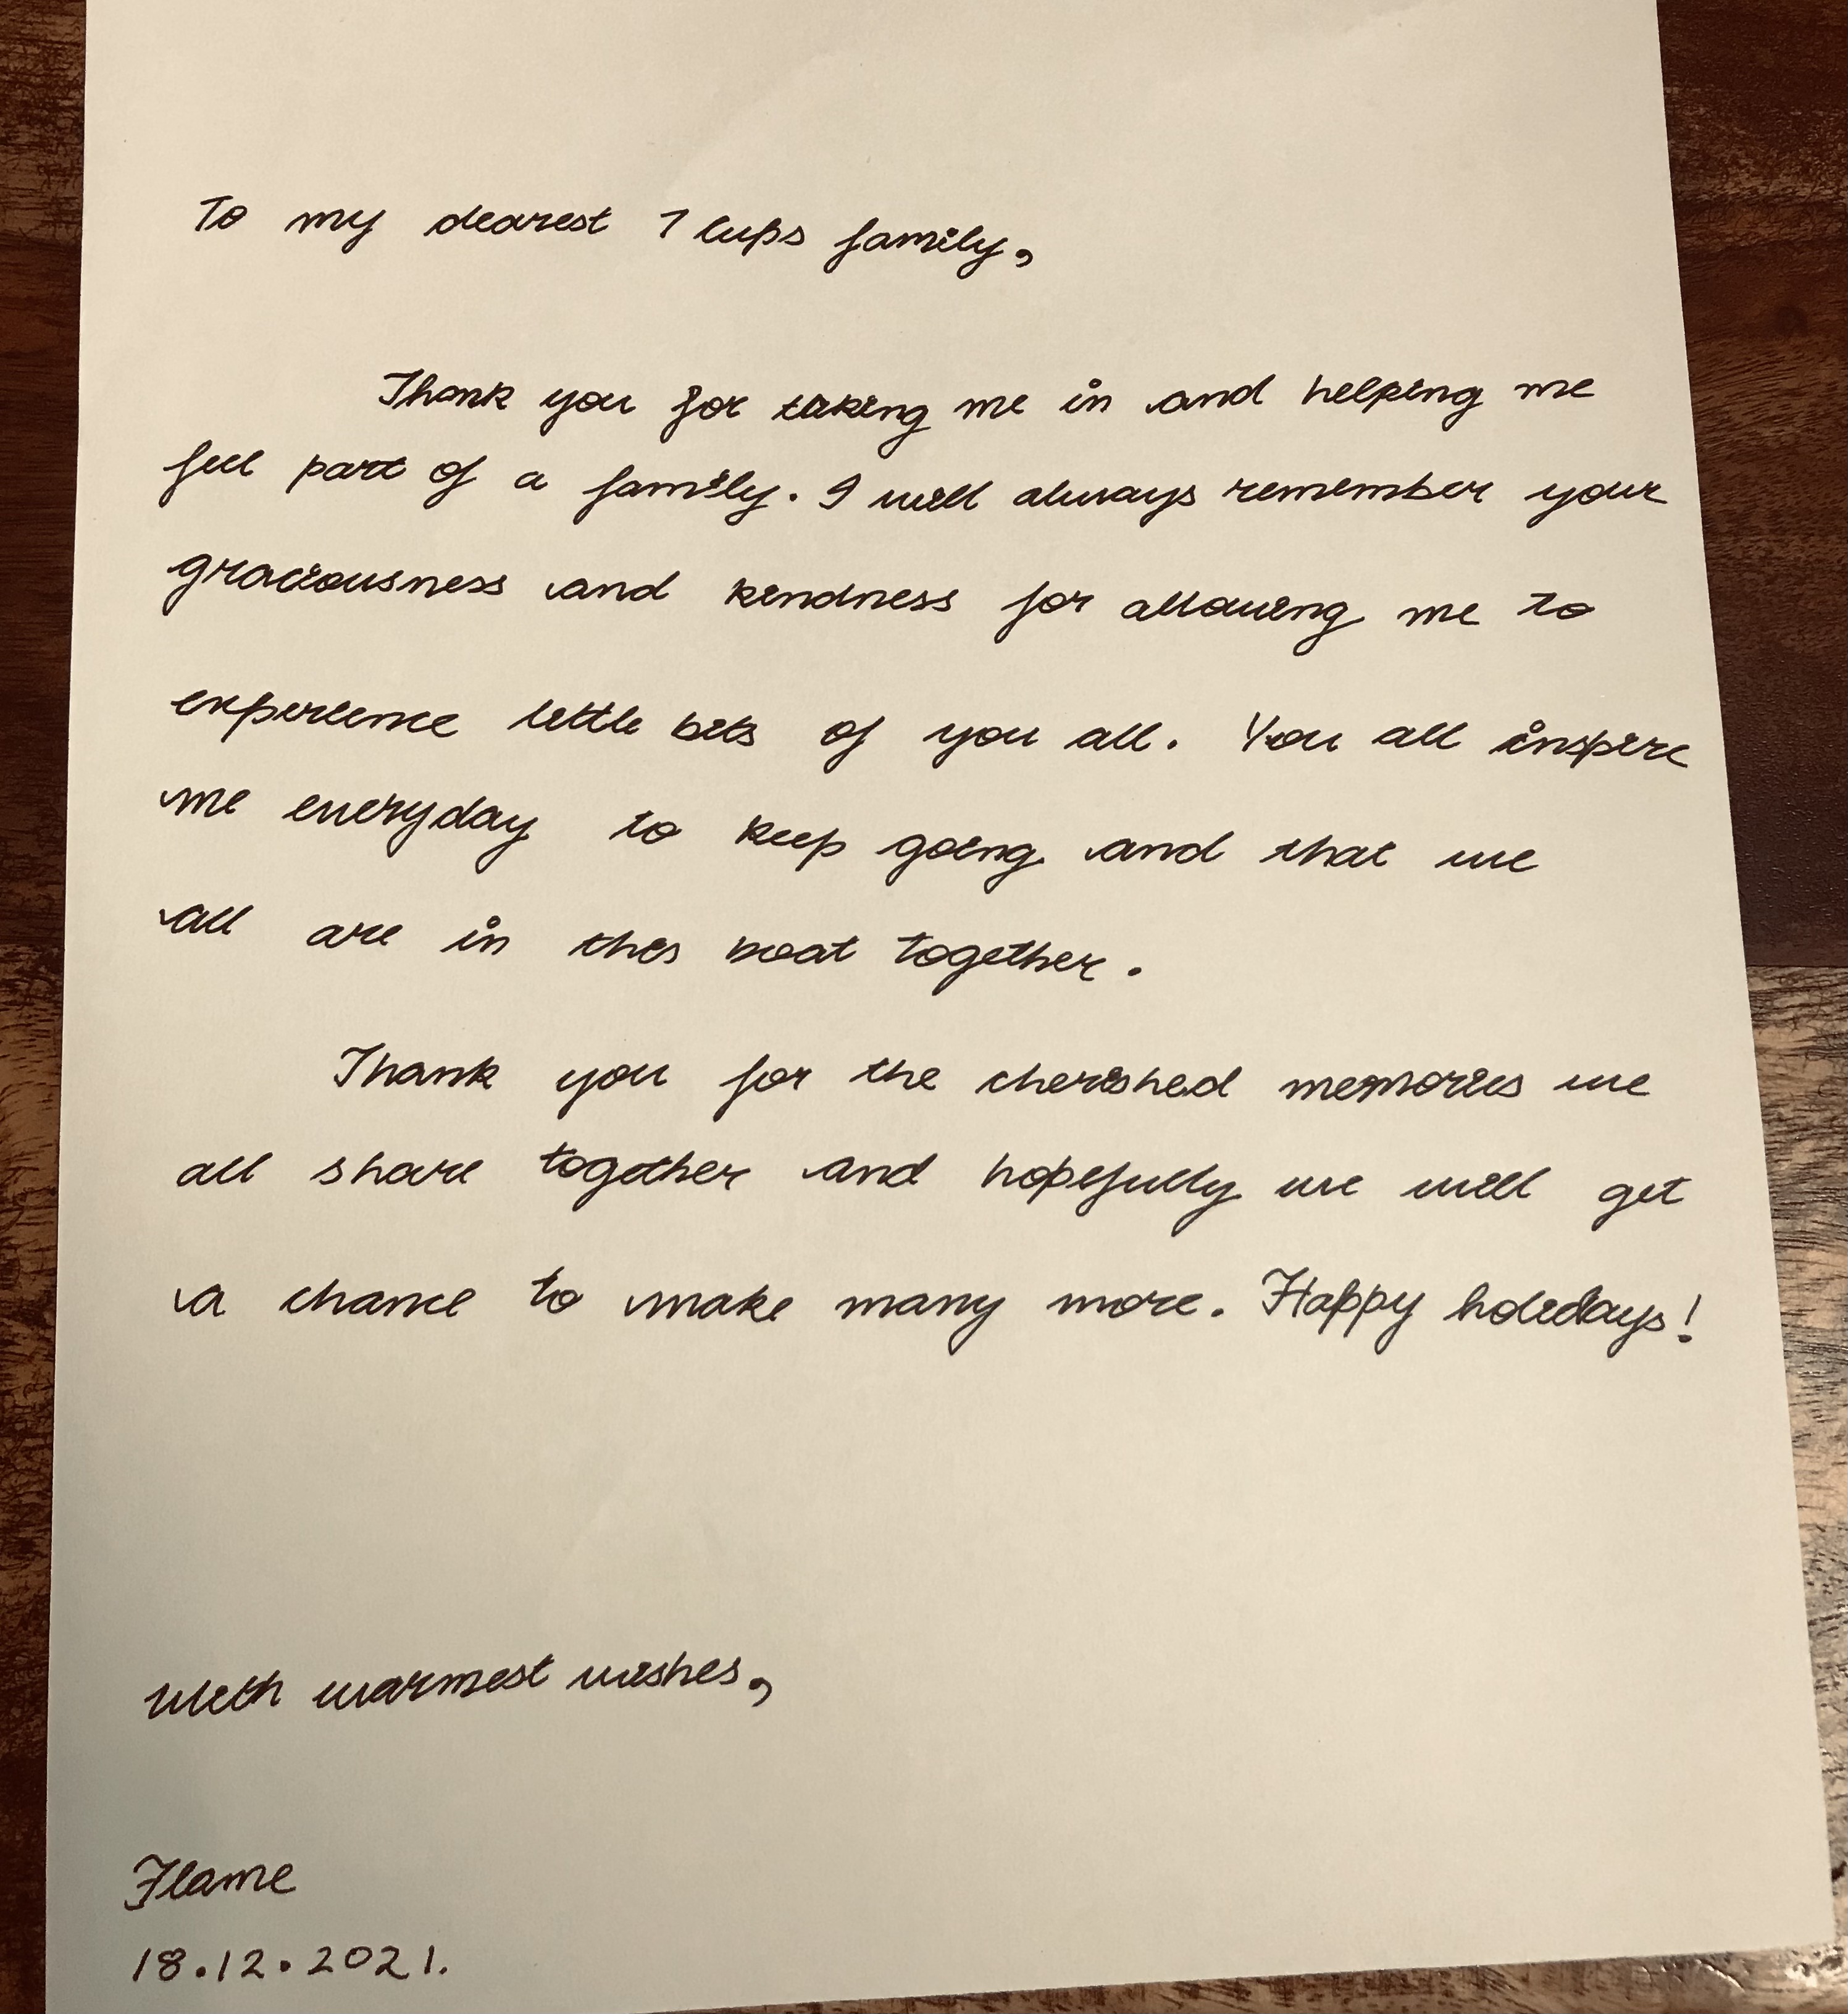 To my dearest 7 Cups family,
Thank you for taking me in and helping me
feel part of a family. I will always remember your
graciousness and kindness for allowing me to
experience little bits of you all. You all inspire
me everyday to keep going and that we
all are in this boat together.
Thank you for the cherished memories we
all share together and hopefully we will get
a chance to make many more. Happy holidays!
With warmest wishes,
Flame
18.12.2021.